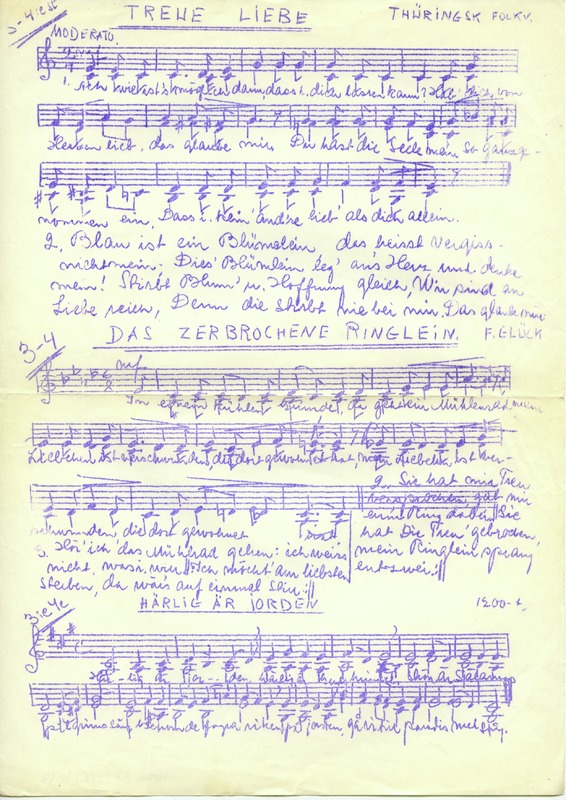 TREUE LIEBE THÜRINGSK FOLKV.
MODERATO
1. Ach wie ist's möglich dann, dass i. dich lassen kann? Hab' dich von
Herzen lieb, das glaube mir. Du hast die Seele mein so ganz ge-
nommen ein, Dass i. kein' and're lieb als dich allein.
2. Blau ist ein Blümelein das heisst Vergiss-
nichtmein: Dies' Blümlein leg' an's Herz und denke
mein! Stirbt Blum' u. Hoffnung gleich, Wir sind an
Liebe reich, Denn die stirbt nie bei mir, Das glaube mir
DAS ZERBROCHENE RINGLEIN. F. GLÜCK
3-4
mf.
In einem kühlen Grunde, da geht ein Mühlenrad mein
Liebchen ist verschwunden, die dort gewohnet hat, mein Liebchen ist ver-
schwunden, die dort gewohnet
2. Sie hat mir Treu
versprochen, gab mir
einen Ring dabei Sie
hat die Treu' gebrochen,
mein Ringlein sprang
entzwei. :||
3. Hör' ich das Mühlrad gehen: ich weiss
nicht was i. will ||: Ich möcht' am liebsten
sterben, da wär's auf einmal still :||
HÄRLIG ÄR JORDEN 1200-t.
Här-lig är jor-den härlig är Guds himmel skön är själarnas
pilgrimsgång Genom de fagra riken på jorden, gå vi till paradis med sång.